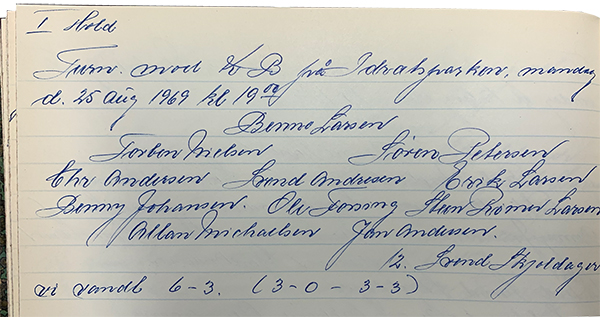 I Hold
Turn. mod KB på Idrætsparken, mandag
d. 25 Aug 1969 kl 19 00
Benno Larsen
Torben Nielsen Søren Petersen
Chr Andersen Svend Andresen Erik Larsen
Benny Johansen. Ole Fonsing Sten Rømer Larsen
Allan Michaelsen Jan Andersen.
12. Svend Skjoldager
vi vandt 6-3. (3-0 - 3-3)